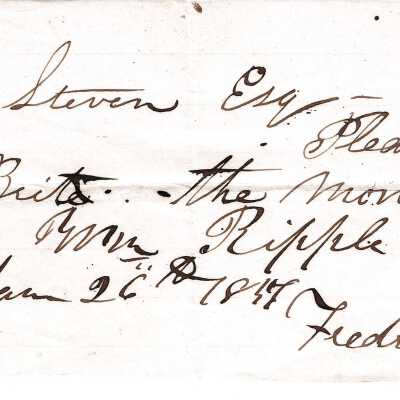 Steven Esq -
Plea
the mon
Wm Ripple
Jan 26th 1847
Fredr